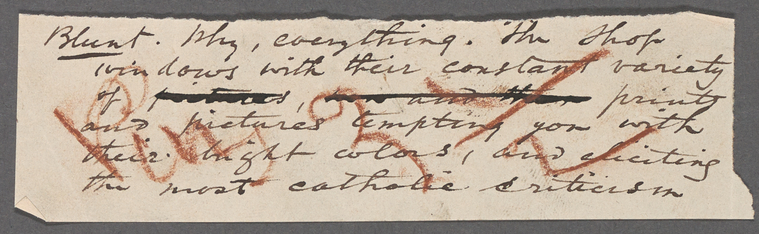 Blunt. Why, everything. The shop
windows with their constant variety
of pictures, now and then prints
and pictures tempting you with
their bright colors, and eliciting
the most catholic criticism